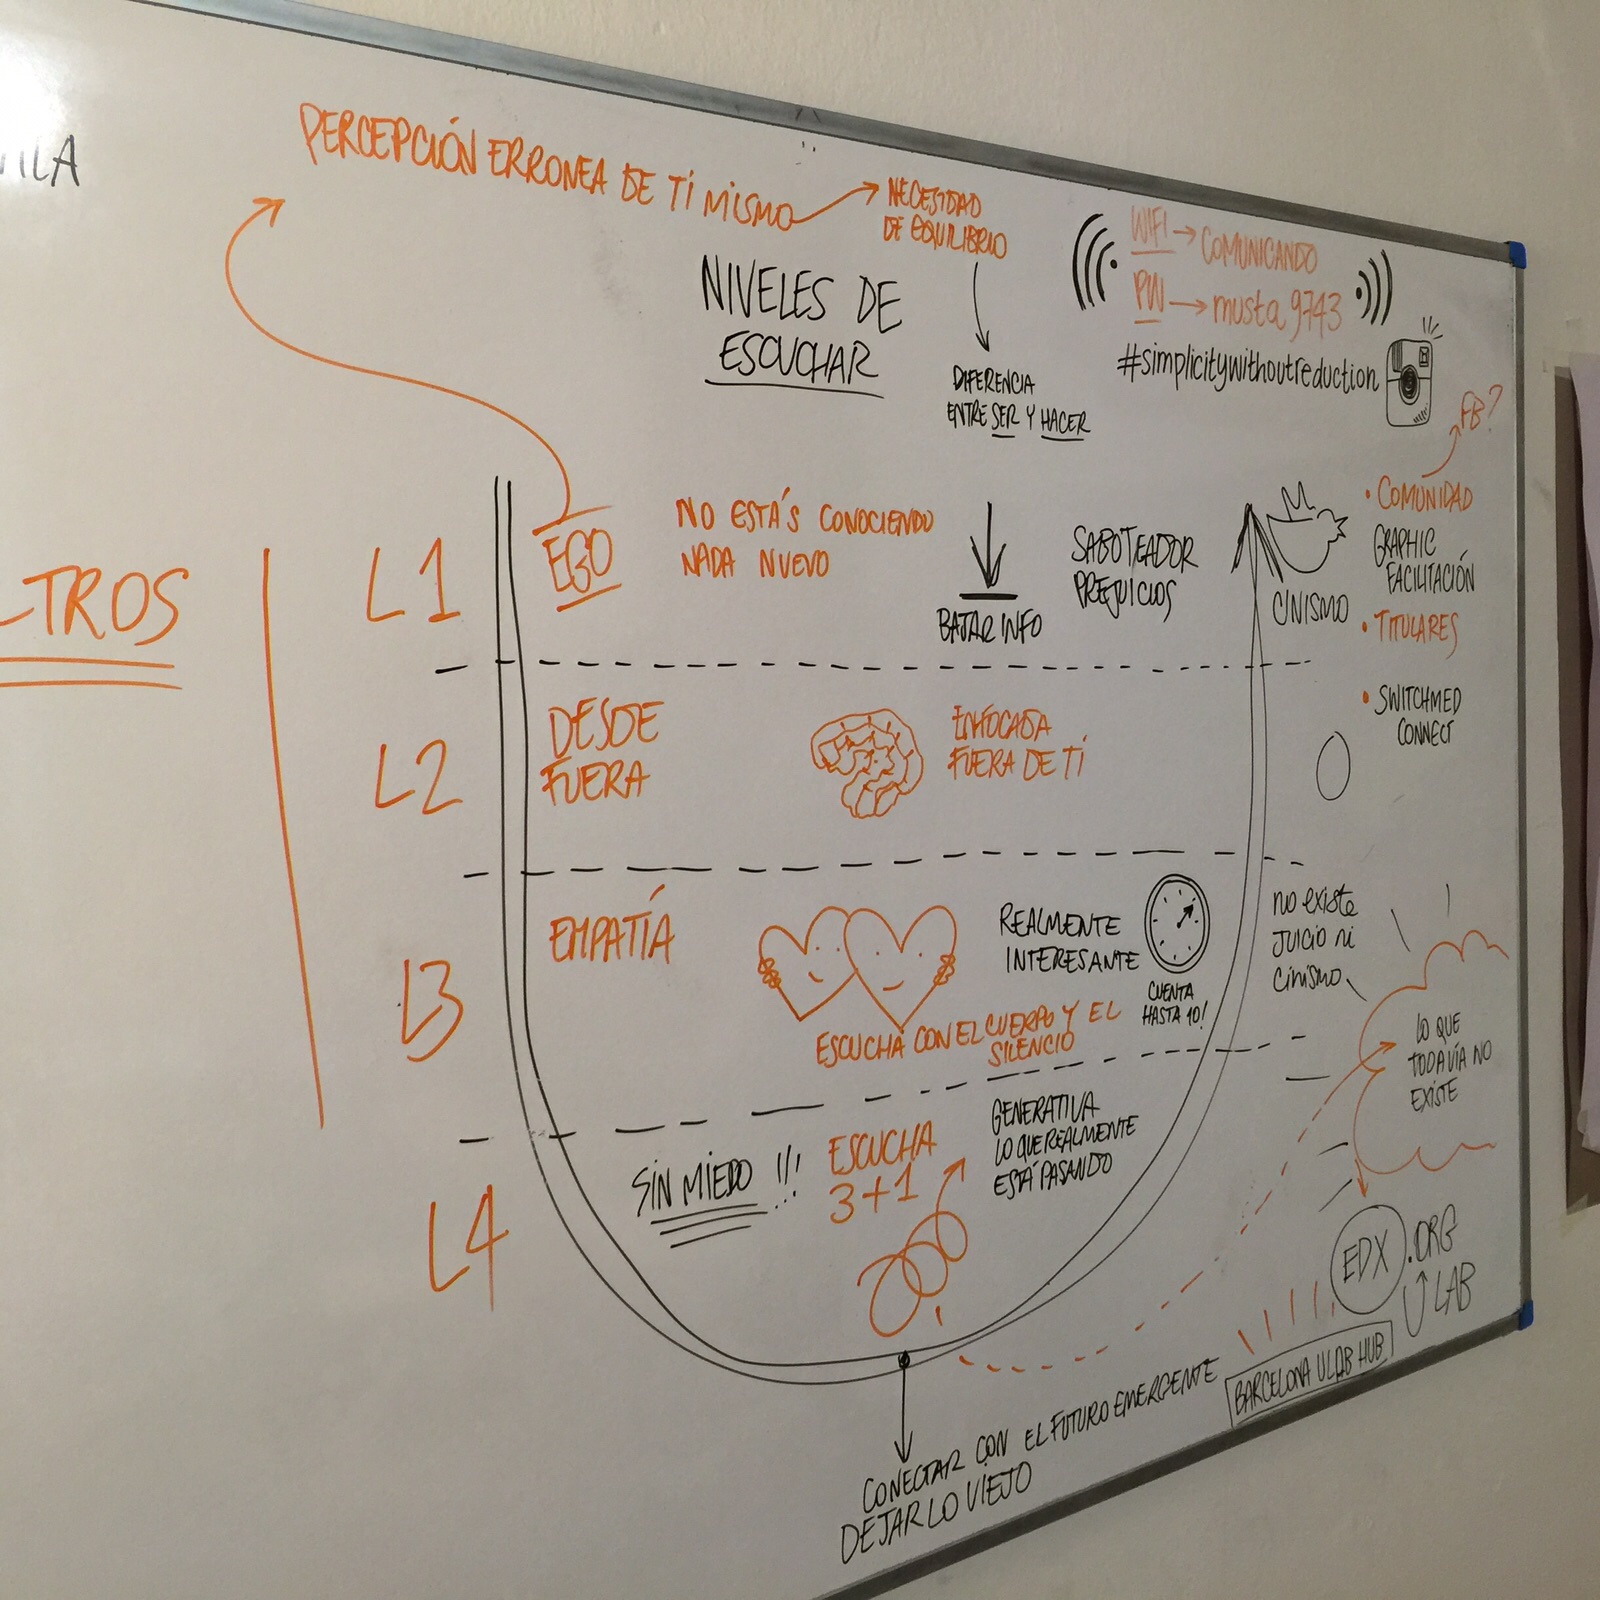 PERCEPCIÓN ERRONEA DE TI MISMO
NECESIDAD
DE EQUILIBRIO
WIFI → COMUNICANDO
PW → musta9743
#simplicitywithoutreduction
NIVELES DE
ESCUCHAR
DIFERENCIA
ENTRE SER Y HACER
FB?
• COMUNIDAD
GRAPHIC
FACILITACIÓN
• TITULARES
• SWITCHMED
CONNECT
LTROS
L1
EGO
NO ESTÁS CONOCIENDO
NADA NUEVO
BAJAR INFO
SABOTEADOR
PREJUICIOS
CINISMO
L2
DESDE
FUERA
ENFOCADA
FUERA DE TÍ
L3
EMPATÍA
REALMENTE
INTERESANTE
CUENTA
HASTA 10!
ESCUCHA CON EL CUERPO Y EL
SILENCIO
no existe
juicio ni
cinismo
LO QUE
TODAVÍA NO
EXISTE
L4
SIN MIEDO !!!
ESCUCHA
3+1
GENERATIVA
LO QUE REALMENTE
ESTÁ PASANDO
EDX.ORG
U LAB
BARCELONA ULAB HUB
CONECTAR CON EL FUTURO EMERGENTE
DEJAR LO VIEJO